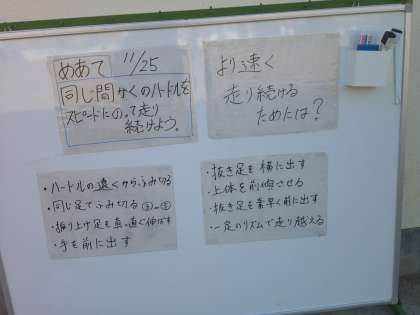 めあて 11/25
同じ間かくのハードルを
スピードにのって走り
続けよう。
より速く
走り続ける
ためには?
・ハードルの遠くから、ふみ切る
・同じ足でふみ切る
・振り上げ足を真っ直ぐ伸ばす
・手を前に出す
・抜き足を横に出す
・上体を前傾させる
・抜き足を素早く前に出す
・一定のリズムで走り越える